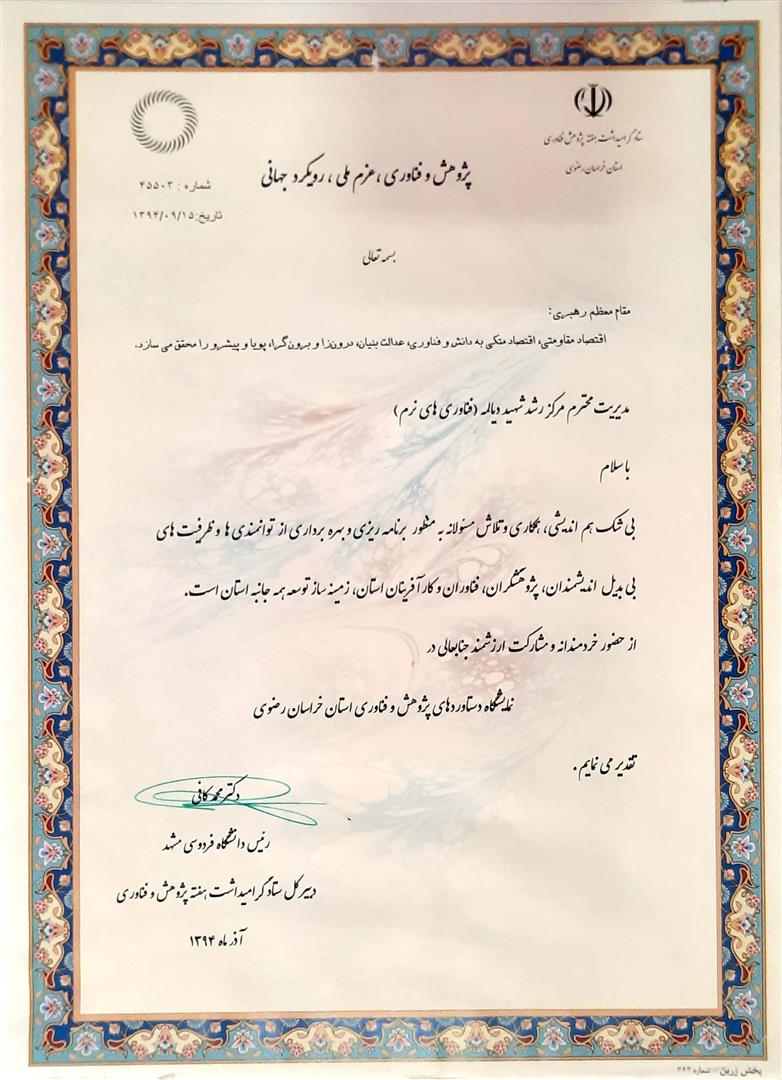 ستاد گرامیداشت هفته پژوهش و فناوری
استان خراسان رضوی
پژوهش و فناوری، عزم ملی، رویکرد جهانی
شماره : ۴۵۵۰۳
تاریخ:۱۳۹۴/۰۹/۱۵
بسمه تعالی
مقام معظم رهبری:
اقتصاد مقاومتی، اقتصاد متکی به دانش و فناوری، عدالت بنیان، درون‌زا و برون‌گرا، پویا و پیشرو را محقق می سازد.
مدیریت محترم مرکز رشد شهید دیالمه (فناوری های نرم)
با سلام
بی شک هم اندیشی، همکاری و تلاش مسئولانه به منظور برنامه ریزی و بهره برداری از توانمندی ها و ظرفیت های
بی بدیل اندیشمندان، پژوهشگران، فناوران و کارآفرینان استان، زمینه ساز توسعه همه جانبه استان است.
از حضور خردمندانه و مشارکت ارزشمند جنابعالی در
نمایشگاه دستاوردهای پژوهش و فناوری استان خراسان رضوی
تقدیر می نمایم.
دکتر محمد کافی
رئیس دانشگاه فردوسی مشهد
دبیر کل ستاد گرامیداشت هفته پژوهش و فناوری
آذر ماه ۱۳۹۴
پخش زرین - شماره ۳۶۳